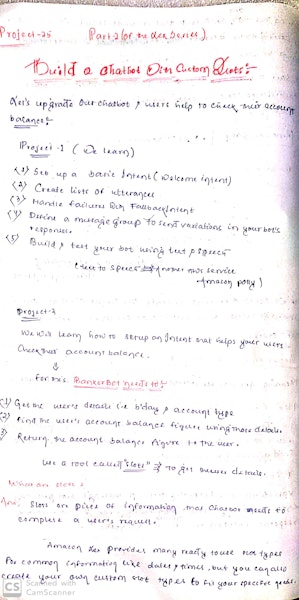 Project-25 Part-2 (of the Lex Series)
Build a chatbot With Custom Slots:-
Let's upgrade our chatbot & users help to check their account
balance:-
Project-1 (We learn)
<1> Set up a basic Intent (Welcome intent)
<2> Create lists of utterances
<3> Handle failures FallbackIntent
<4> Define a message group to send variations in your bot's
response.
<5> Build & test your bot using text & speech
(text to speech another aws service
Amazon polly)
Project-2
We will learn how to setup an Intent that helps your users
Check their account balance.
for this BankerBot needs to:
(1) Get the user's details i.e b'day & account type
(2) find the user's account balance figure using those details.
3) Return the account balance figure to the user.
Use a tool called "slots" → to get user details.
What are slots?
Ans: Slots are piece of information that Chatbot needs to
complete a user's request.
Amazon Lex provides many ready to use slot types
For common information like dates & times, but you can also
create your own custom slot types to fit your specific needs.
CS Scanned with
CamScanner